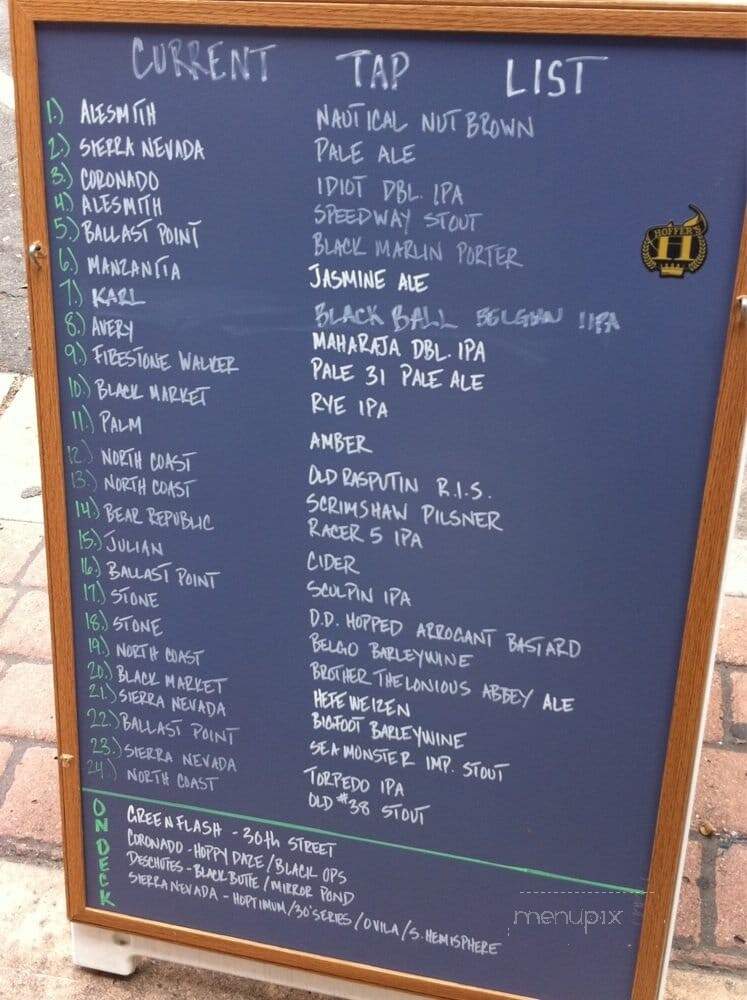 CURRENT TAP LIST
1.) ALESMITH NAUTICAL NUT BROWN
2.) SIERRA NEVADA PALE ALE
3.) CORONADO IDIOT DBL. IPA
4.) ALESMITH SPEEDWAY STOUT
5.) BALLAST POINT BLACK MARLIN PORTER
6.) MANZANITA JASMINE ALE
7.) KARL BLACK BALL BELGIAN IIPA
8.) AVERY MAHARAJA DBL. IPA
9.) FIRESTONE WALKER PALE 31 PALE ALE
10.) BLACK MARKET RYE IPA
11.) PALM AMBER
12.) NORTH COAST OLD RASPUTIN R.I.S.
13.) NORTH COAST SCRIMSHAW PILSNER
14.) BEAR REPUBLIC RACER 5 IPA
15.) JULIAN CIDER
16.) BALLAST POINT SCULPIN IPA
17.) STONE D.D. HOPPED ARROGANT BASTARD
18.) STONE BELGO BARLEYWINE
19.) NORTH COAST BROTHER THELONIOUS ABBEY ALE
20.) BLACK MARKET HEFEWEIZEN
21.) SIERRA NEVADA BIGFOOT BARLEYWINE
22.) BALLAST POINT SEA MONSTER IMP. STOUT
23.) SIERRA NEVADA TORPEDO IPA
24.) NORTH COAST OLD #38 STOUT
HOFFER'S
H
ON DECK
GREEN FLASH - 30th STREET
CORONADO - HOPPY DAZE / BLACK OPS
DESCHUTES - BLACK BUTTE / MIRROR POND
SIERRA NEVADA - HOPTIMUM/30 SERIES/OVILA/S. HEMISPHERE
menupix